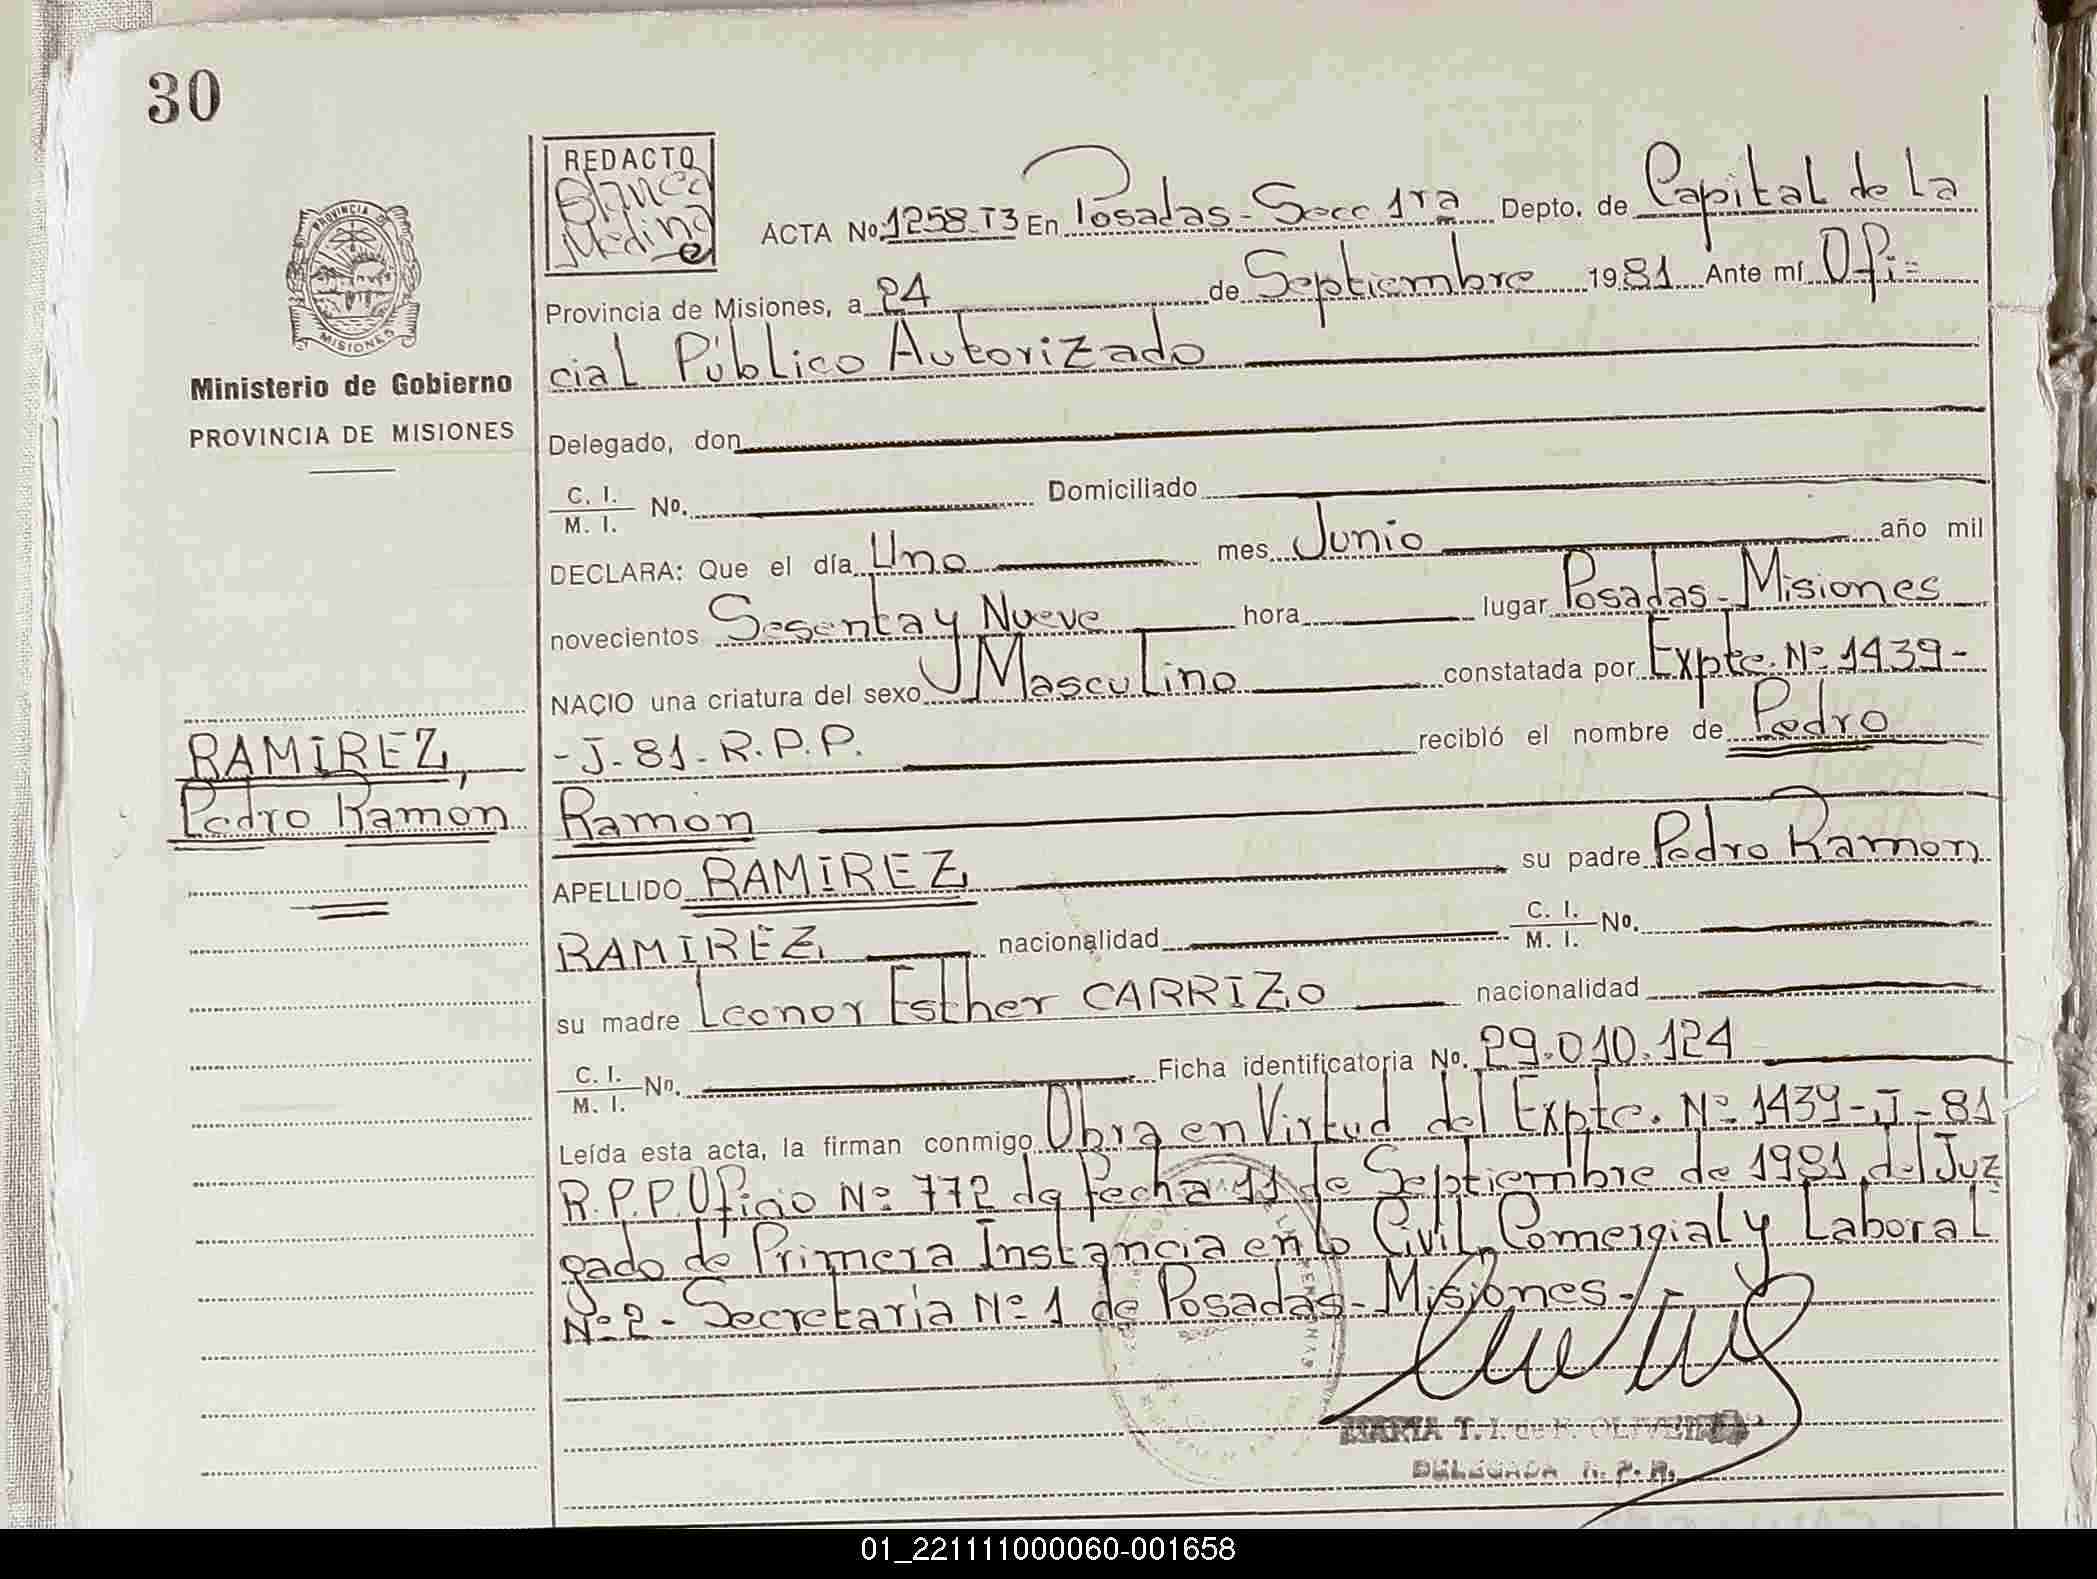 30
REDACTO
Blanca
Medina
ACTA No 1258-T3 En Posadas - Secc 1ra Depto. de Capital de La
Provincia de Misiones, a 24 de Septiembre 1981 Ante mí Ofi=
cial Público Autorizado
PROVINCIA D
MISIONES
Ministerio de Gobierno
PROVINCIA DE MISIONES
Delegado, don
C. I. No. Domiciliado
M. I.
DECLARA: Que el día Uno mes Junio año mil
novecientos Sesenta y Nueve hora lugar Posadas - Misiones
NACIO una criatura del sexo Masculino constatada por Expte. Nº 1439-
-J-81-R.P.P. recibió el nombre de Pedro
RAMIREZ,
Pedro Ramon
Ramon
APELLIDO RAMIREZ su padre Pedro Ramon
RAMIREZ nacionalidad C. I. No.
M. I.
su madre Leonor Esther CARRIZO nacionalidad
C. I. No. Ficha identificatoria No. 29.010.124
M. I.
Leída esta acta, la firman conmigo Obra en Virtud del Expte. Nº 1439-J-81
R.P.P. Oficio Nº 772 de fecha 11 de Septiembre de 1981 del Juz
gado de Primera Instancia en lo Civil, Comercial y Laboral
Nº 2 - Secretaria Nº 1 de Posadas - Misiones.-
MARIA T. OLIVEIRA
DELEGADA R. P. P.
01_221111000060-001658